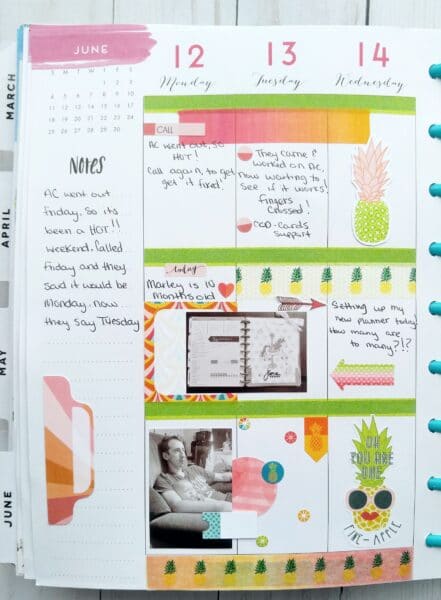 JUNE
S M T W T F S
1 2 3
4 5 6 7 8 9 10
11 12 13 14 15 16 17
18 19 20 21 22 23 24
25 26 27 28 29 30
MARCH
APRIL
MAY
JUNE
Notes
AC went out
Friday. So its
been a HOT!!
weekend. Called
Friday and they
said it would be
Monday. now
they say Tuesday
12
Monday
CALL
AC went out, so
HOT!
Call again, to get
get it fixed!
today
Marley is 10
Months old
13
Tuesday
They came &
worked on AC,
now waiting to
see if it works!
Fingers
Crossed!
COD-cards
support
14
Wednesday
Setting up my
new planner today!
How many are
to many?!?
OH
YOU ARE
ONE
FINE-APPLE